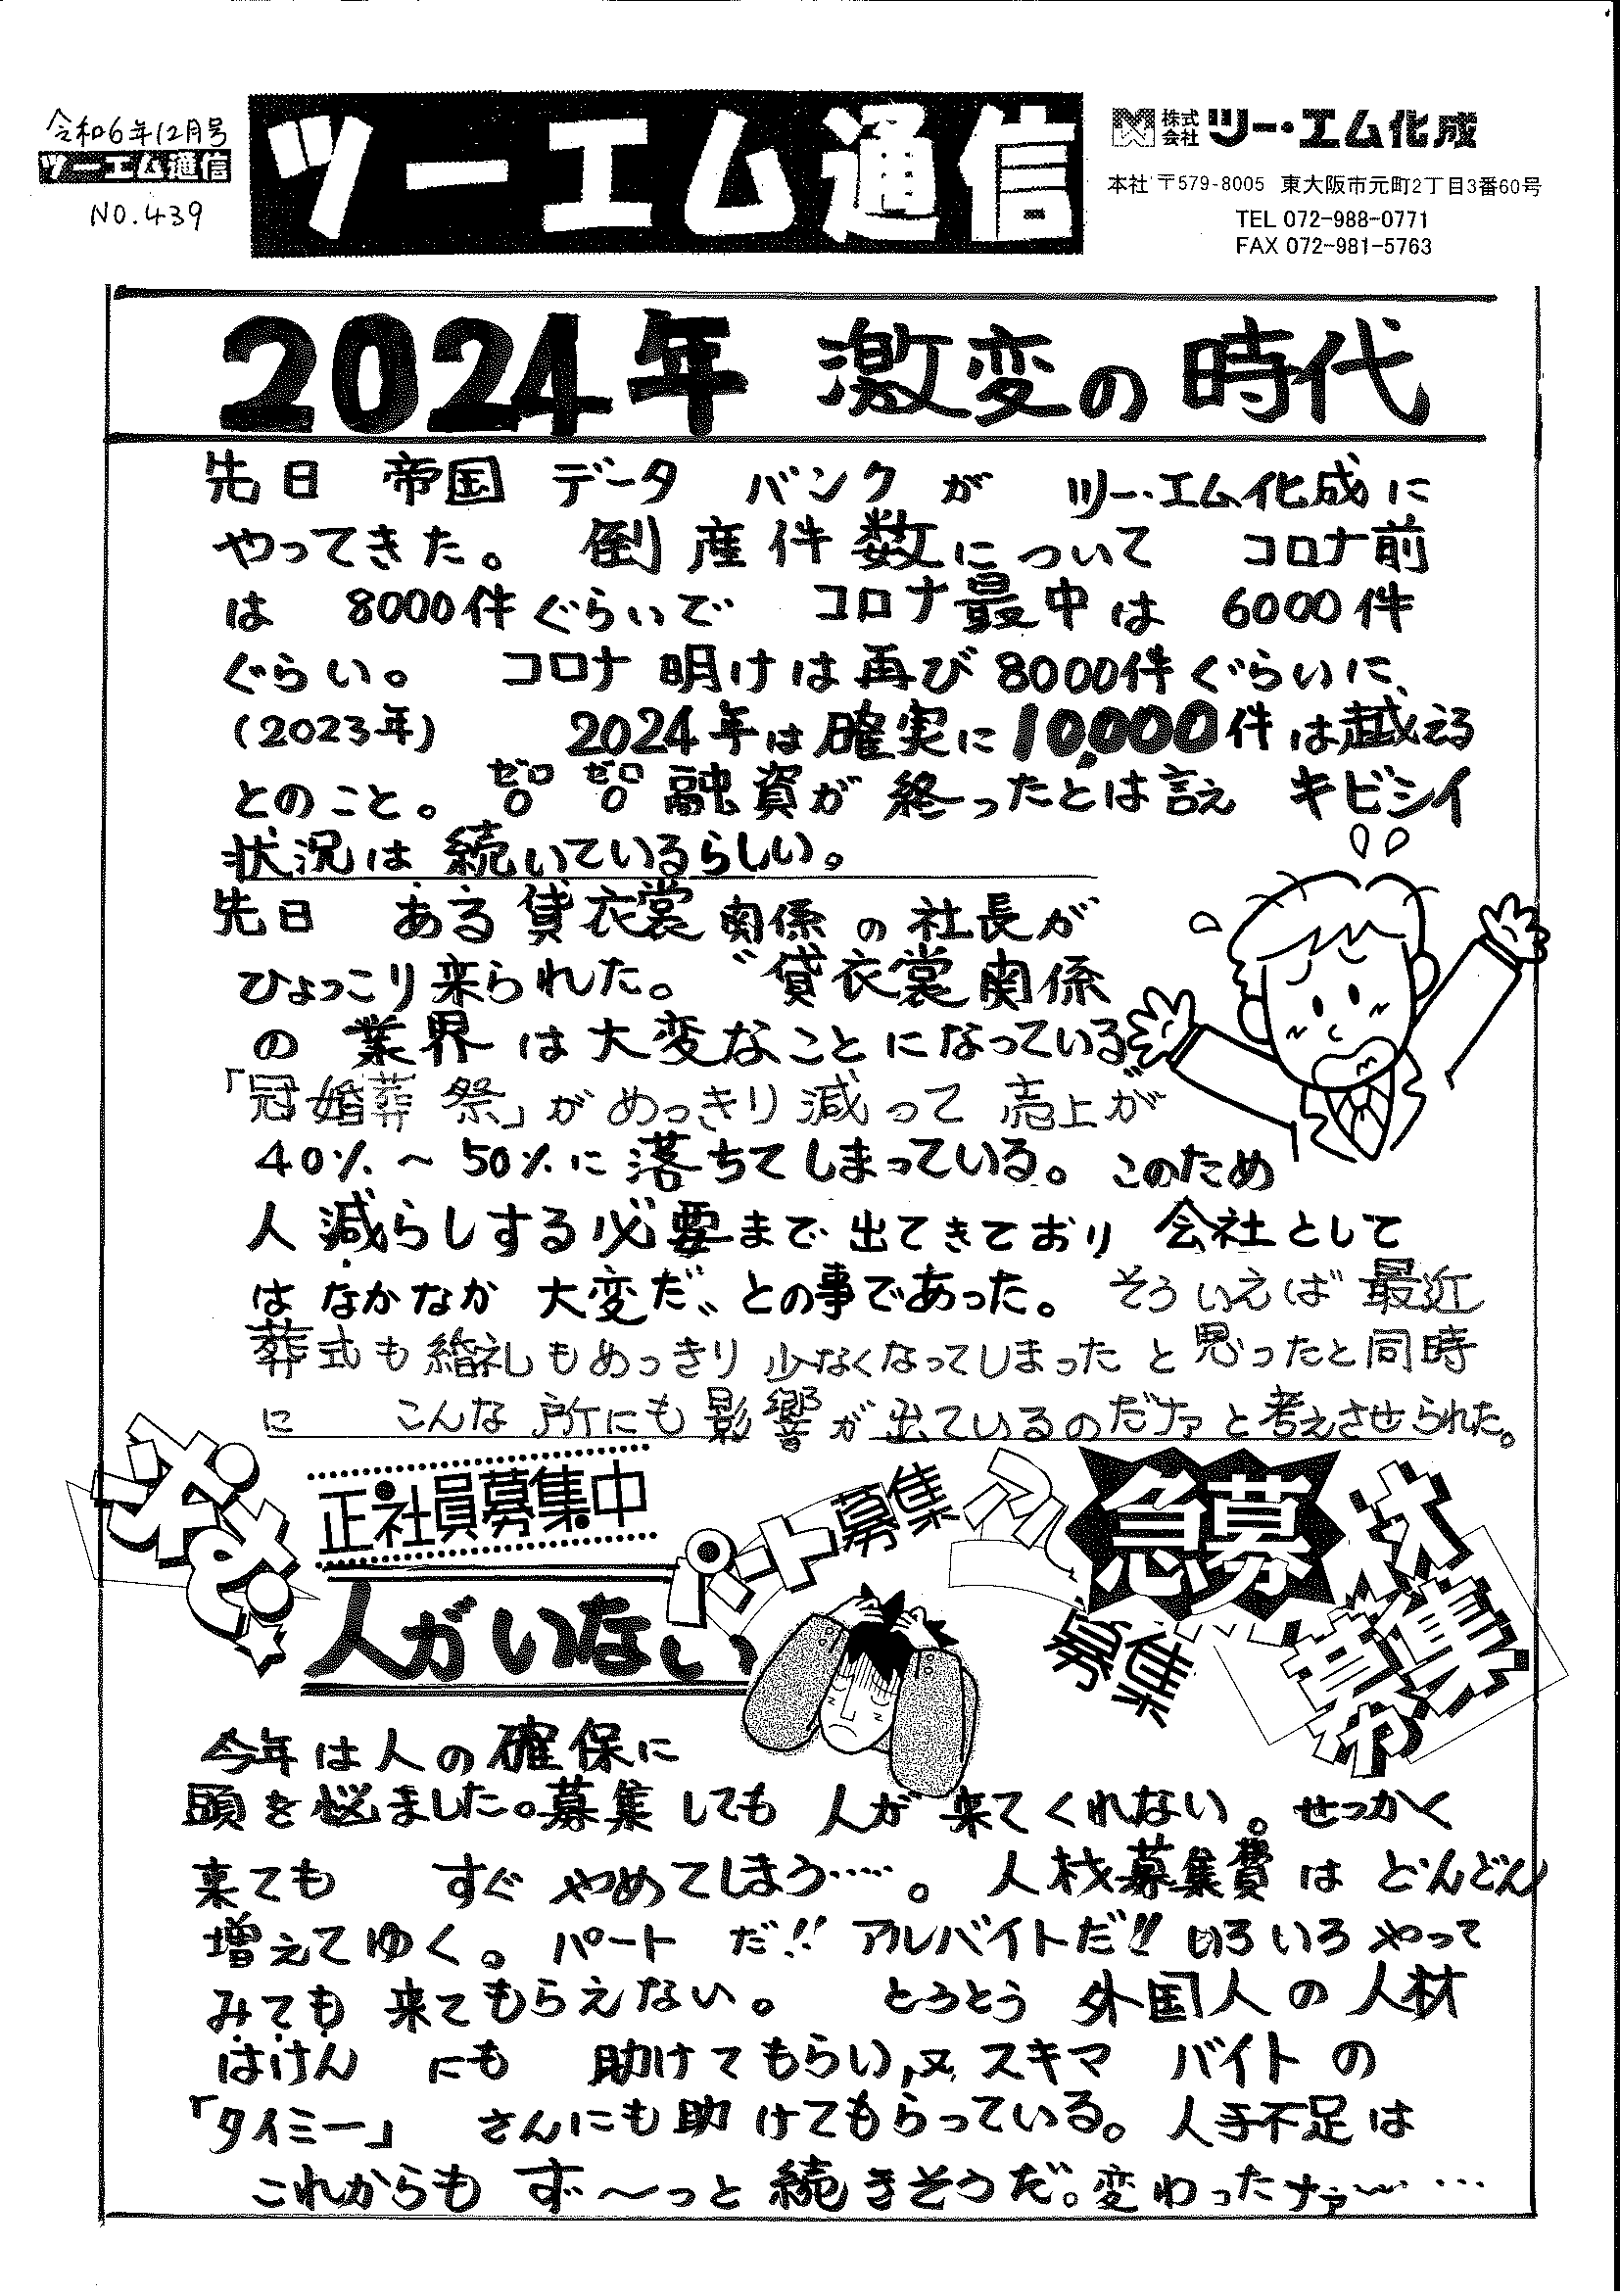 令和6年12月号
ツーエム通信
NO.439
ツーエム通信
株式会社 ツー・エム化成
本社 〒579-8005 東大阪市元町2丁目3番60号
TEL 072-988-0771
FAX 072-981-5763
2024年 激変の時代
先日 帝国 データ バンク が ツー・エム化成に
やってきた。 倒産件数について コロナ前
は 8000件ぐらいで コロナ最中は 6000件
ぐらい。 コロナ明けは再び8000件ぐらいに
(2023年) 2024年は確実に10,000件は越える
とのこと。 ゼロ0 ゼロ0 融資が終ったとは言え キビシイ
状況は続いているらしい。
先日 ある貸衣裳関係の社長が
ひょっこり来られた。〝貸衣裳関係
の業界は大変なことになっている
「冠婚葬祭」がめっきり減って売上が
40%～50%に落ちてしまっている。このため
人減らしする必要まで出てきており 会社として
はなかなか大変だ〟との事であった。そういえば最近
葬式も婚礼もめっきり少なくなってしまったと思ったと同時
に こんな所にも影響が出ているのだナァと考えさせられた。
正社員募集中
パート募集
急募
募集
人がいない
今年は人の確保に
頭を悩ました。募集しても人が来てくれない。せっかく
来ても すぐやめてしまう……。 人材募集費はどんどん
増えてゆく。パートだ!! アルバイトだ!! いろいろやって
みても来てもらえない。 とうとう外国人の人材
はけんにも助けてもらい,又スキマバイトの
「タイミー」さんにも助けてもらっている。人手不足は
これからもず～っと続きそうだ。変わったナァ～……